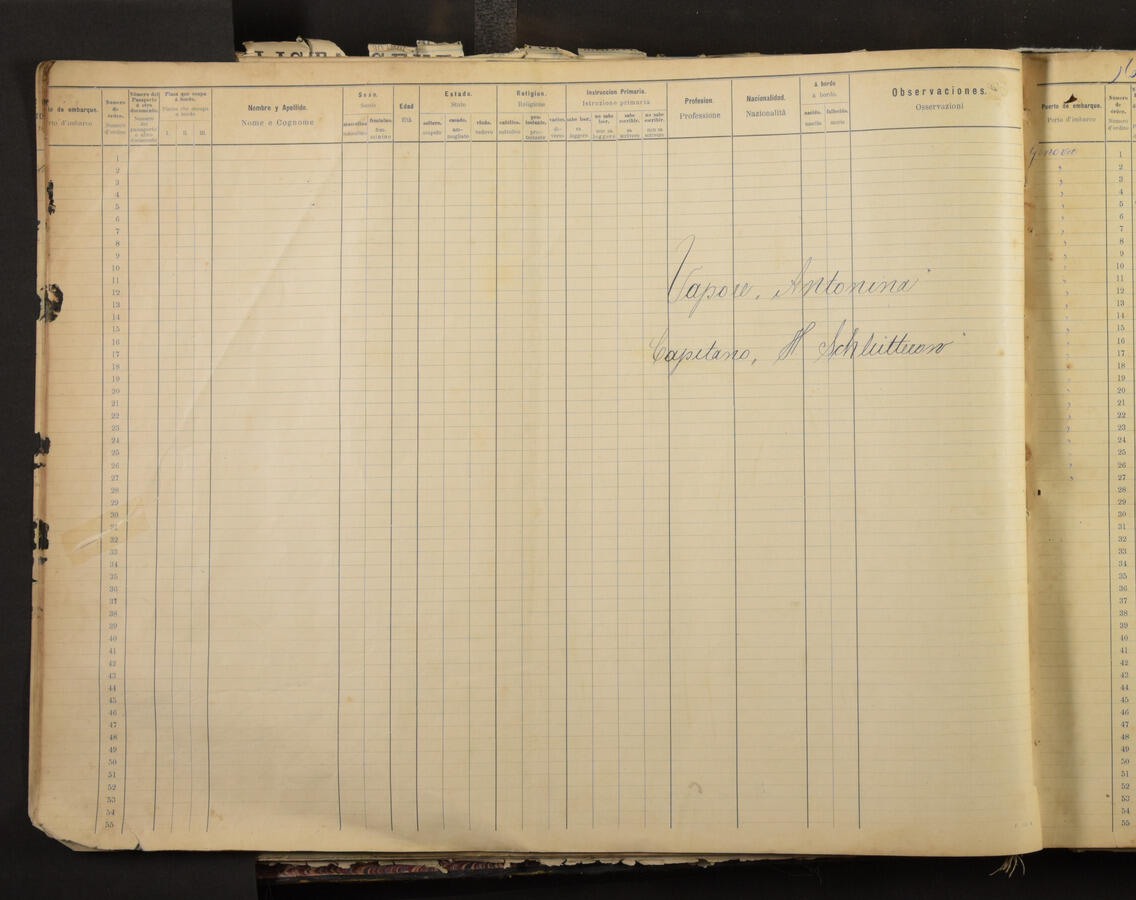 to de embarque.
rto d'imbarco
Número de órden.
Numero d'ordine
Número del Pasaporte ú otro documento.
Numero del passaporto o altro documento
Plaza que ocupa á bordo.
Piazza che occupa a bordo
I. II. III.
Nombre y Apellido.
Nome e Cognome
Sexo.
Sesso
masculino femenino.
mascolino femminino
Edad
Età
Estado.
Stato
soltero. casado. viudo.
scapolo ammogliato vedovo
Religion.
Religione
católica. protestante. varias.
cattolica protestante diverse
Instruccion Primaria.
Istruzione primaria
sabe leer. no sabe leer. sabe escribir. no sabe escribir.
sa leggere non sa leggere sa scrivere non sa scrivere
Profesion.
Professione
Nacionalidad.
Nazionalità
á bordo
a bordo
nacido. fallecido.
nascita morte
Observaciones.
Osservazioni
1
2
3
4
5
6
7
8
9
10
11
12
13
14
15
16
17
18
19
20
21
22
23
24
25
26
27
28
29
30
31
32
33
34
35
36
37
38
39
40
41
42
43
44
45
46
47
48
49
50
51
52
53
54
55
Vapore. Antonina
Capitano, H
Puerto de embarque.
Porto d'imbarco
Número de órden.
Numero d'ordine
Genova
1
2
3
4
5
6
7
8
9
10
11
12
13
14
15
16
17
18
19
20
21
22
23
24
25
26
27
28
29
30
31
32
33
34
35
36
37
38
39
40
41
42
43
44
45
46
47
48
49
50
51
52
53
54
55